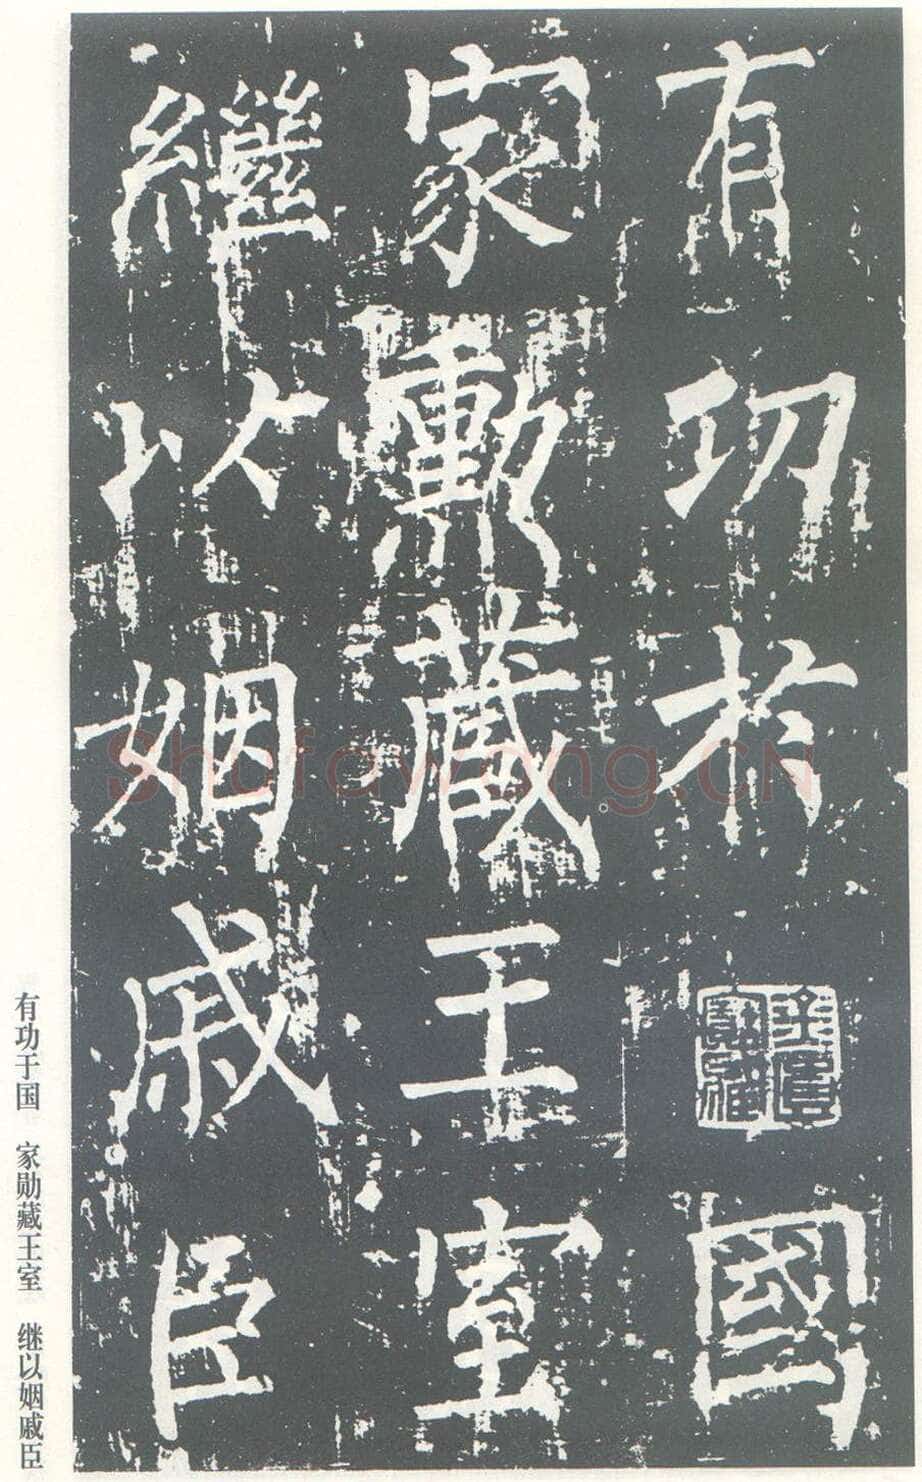 有功於國
家勲藏王室
繼以姻戚臣
有功于国 家勋藏王室 继以姻戚臣
Shufawang.CN